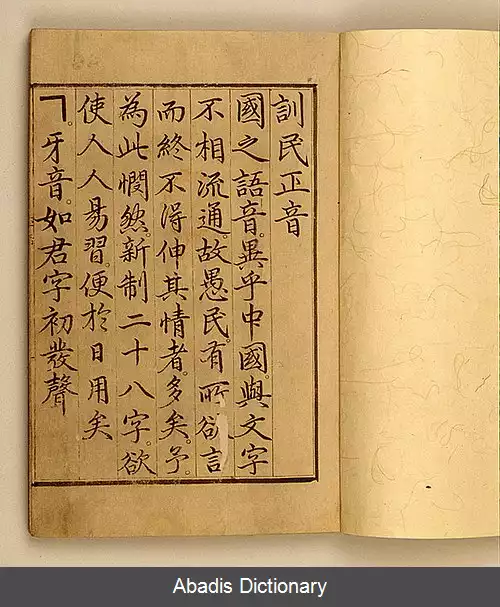 訓民正音
國之語音。異乎中國。與文字
不相流通。故愚民。有所欲言
而終不得伸其情者。多矣。予。
為此憫然。新制二十八字。欲
使人人易習便於日用矣
ㄱ。牙音。如君字初發聲
Abadis Dictionary